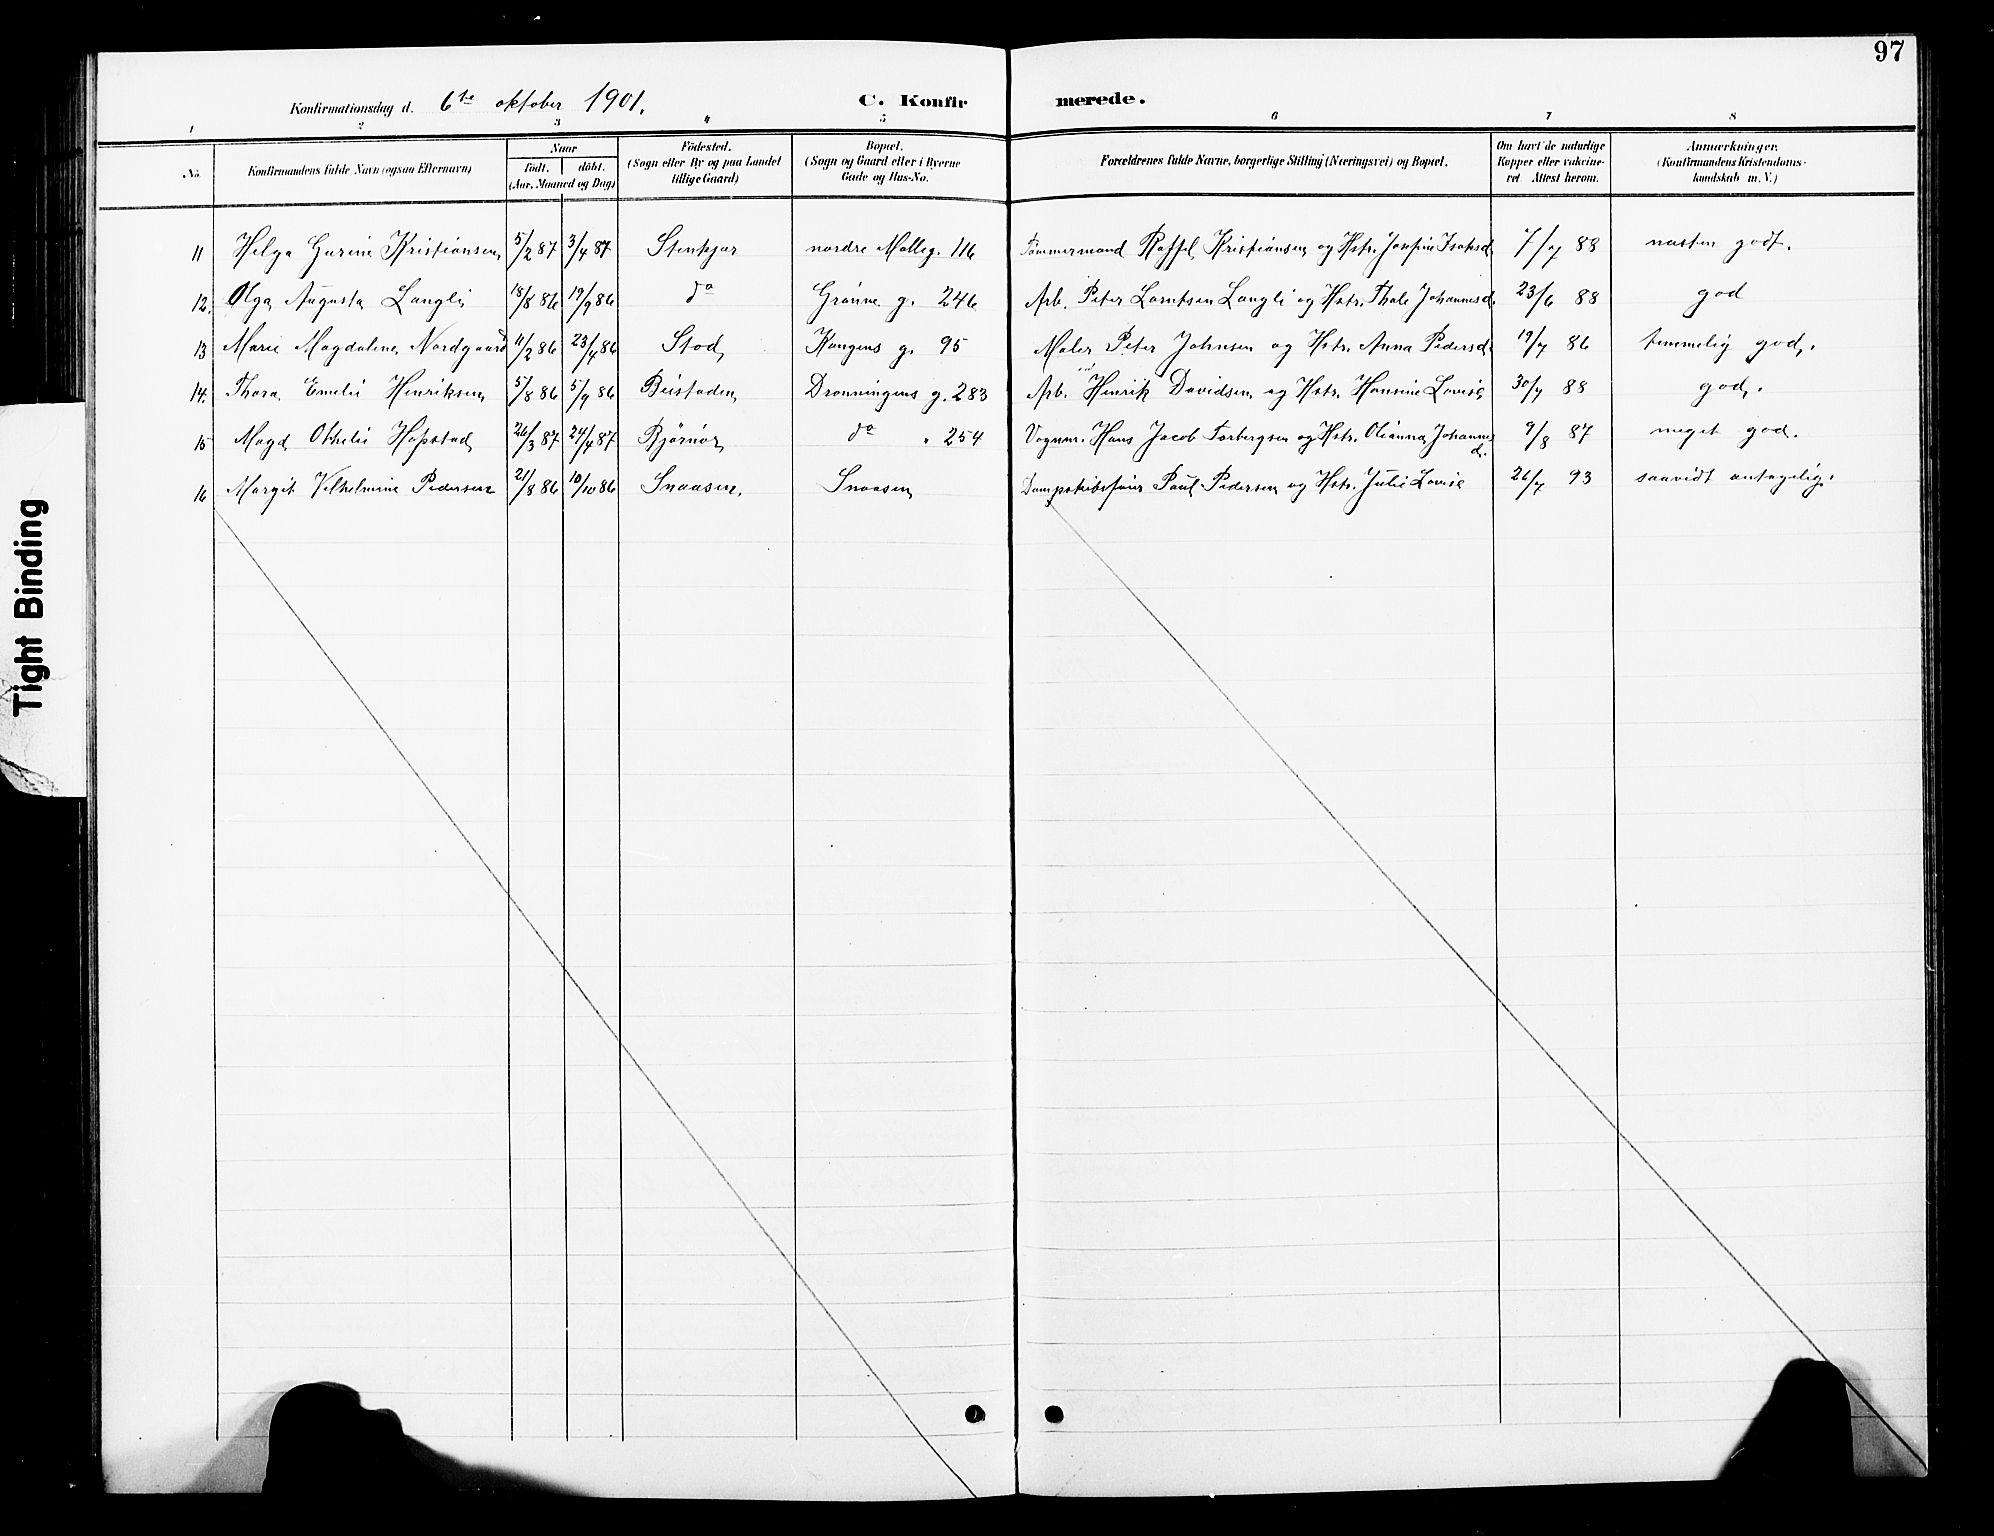 97
Konfirmationsdag d. 6te oktober 1901. C. Konfir merede.
1 2 3 4 5 6 7 8
No. Konfirmandens fulde Navn (ogsaa Efternavn) Naar født. døbt. (Aar, Maaned og Dag) Fødested. (Sogn eller By og paa Landet tillige Gaard) Bopæl. (Sogn og Gaard eller i Byerne Gade og Hus-No. Forældrenes fulde Navne, borgerlige Stilling (Næringsvei) og Bopæl. Om havt de naturlige Kopper eller vakcineret. Attest herom. Anmærkninger. (Konfirmandens Kristendomskundskab m. V.)
11 Helga Gurine Kristiansen 5/2 87 3/4 87 Stenkjær nordre Mølleg. 116 Tømmermand Kristiansen og Hstr. Josefine Isaksd. 7/7 88 næsten godt.
12. Olga Augusta Langli 18/8 86 19/9 86 do Grønne g. 246 Arb. Peter Lorntsen Langli og Hstr. Thale Johannesd. 23/6 88 god
13 Marie Magdalene Nordgaard 11/2 86 23/4 86 Stod Kongens g. 95 Maler Peter Johnsen og Hstr. Anna Pedersd. 19/7 86 temmelig god.
14. Thora Emelie Henriksen 5/8 86 5/9 86 Beistaden Dronningens g. 283 Arb. Henrik Davidsen og Hstr. Hansine Lovise 30/7 88 god.
15 Magd Othelie Hopstad 26/3 87 24/4 87 Bjørnør do " 254 Vognm. Hans Jacob Torbergsen og Hstr. Olianna Johannes
d. 9/8 87 meget god.
16 Margit Vilhelmine Pedersen 21/8 86 10/10 86 Snaasen. Snaasen Dampskibsfører Paul Pedersen og Hstr. Julie Lovise 26/7 93 saavidt antagelig.
Tight Binding